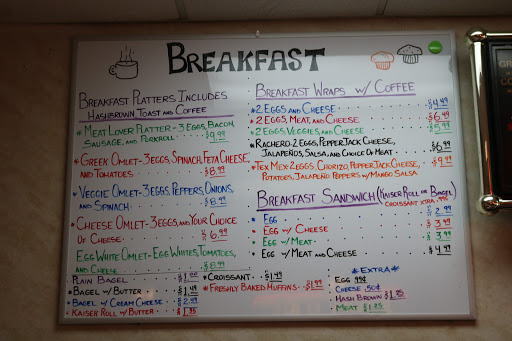 BREAKFAST
BREAKFAST PLATTERS INCLUDES
HASHBROWN, TOAST AND COFFEE
* MEAT LOVER PLATTER - 3 EGGS, BACON,
SAUSAGE, AND PORKROLL $9.99
* GREEK OMLET - 3 EGGS, SPINACH, FETA CHEESE,
AND TOMATOES $8.99
* VEGGIE OMLET - 3 EGGS, PEPPERS, ONIONS,
AND SPINACH $8.99
* CHEESE OMLET - 3 EGGS AND YOUR CHOICE
OF CHEESE $6.99
EGG WHITE OMLET - EGG WHITES, TOMATOES,
AND CHEESE $8.99
PLAIN BAGEL $1.00
* BAGEL W/ BUTTER $1.49
* BAGEL W/ CREAM CHEESE $2.49
* KAISER ROLL W/ BUTTER $1.25
* CROISSANT $1.49
* FRESHLY BAKED MUFFINS $1.99
BREAKFAST WRAPS W/ COFFEE
* 2 EGGS AND CHEESE $4.49
* 2 EGGS, MEAT, AND CHEESE $6.49
* 2 EGGS, VEGGIES, AND CHEESE $5.99
* RACHERO - 2 EGGS, PEPPER JACK CHEESE,
JALAPEÑOS, SALSA, AND CHOICE OF MEAT $6.99
* TEX MEX - 2 EGGS, CHORIZO, PEPPER JACK CHEESE, $9.99
POTATOES, JALAPEÑO PEPPERS W/ MANGO SALSA
BREAKFAST SANDWICH (KAISER ROLL OR BAGEL)
CROISSANT XTRA
* EGG $2.99
* EGG W/ CHEESE $3.99
* EGG W/ MEAT $3.99
* EGG W/ MEAT AND CHEESE $4.49
* EXTRA *
EGG .99¢
CHEESE .50¢
HASH BROWN $1.25
MEAT $1.25